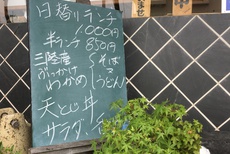 日替りランチ
1.000円
半ランチ 850円
三陸産
ぶっかけ
わかめ
そば
うどん
天とじ丼
サラダ
ませ